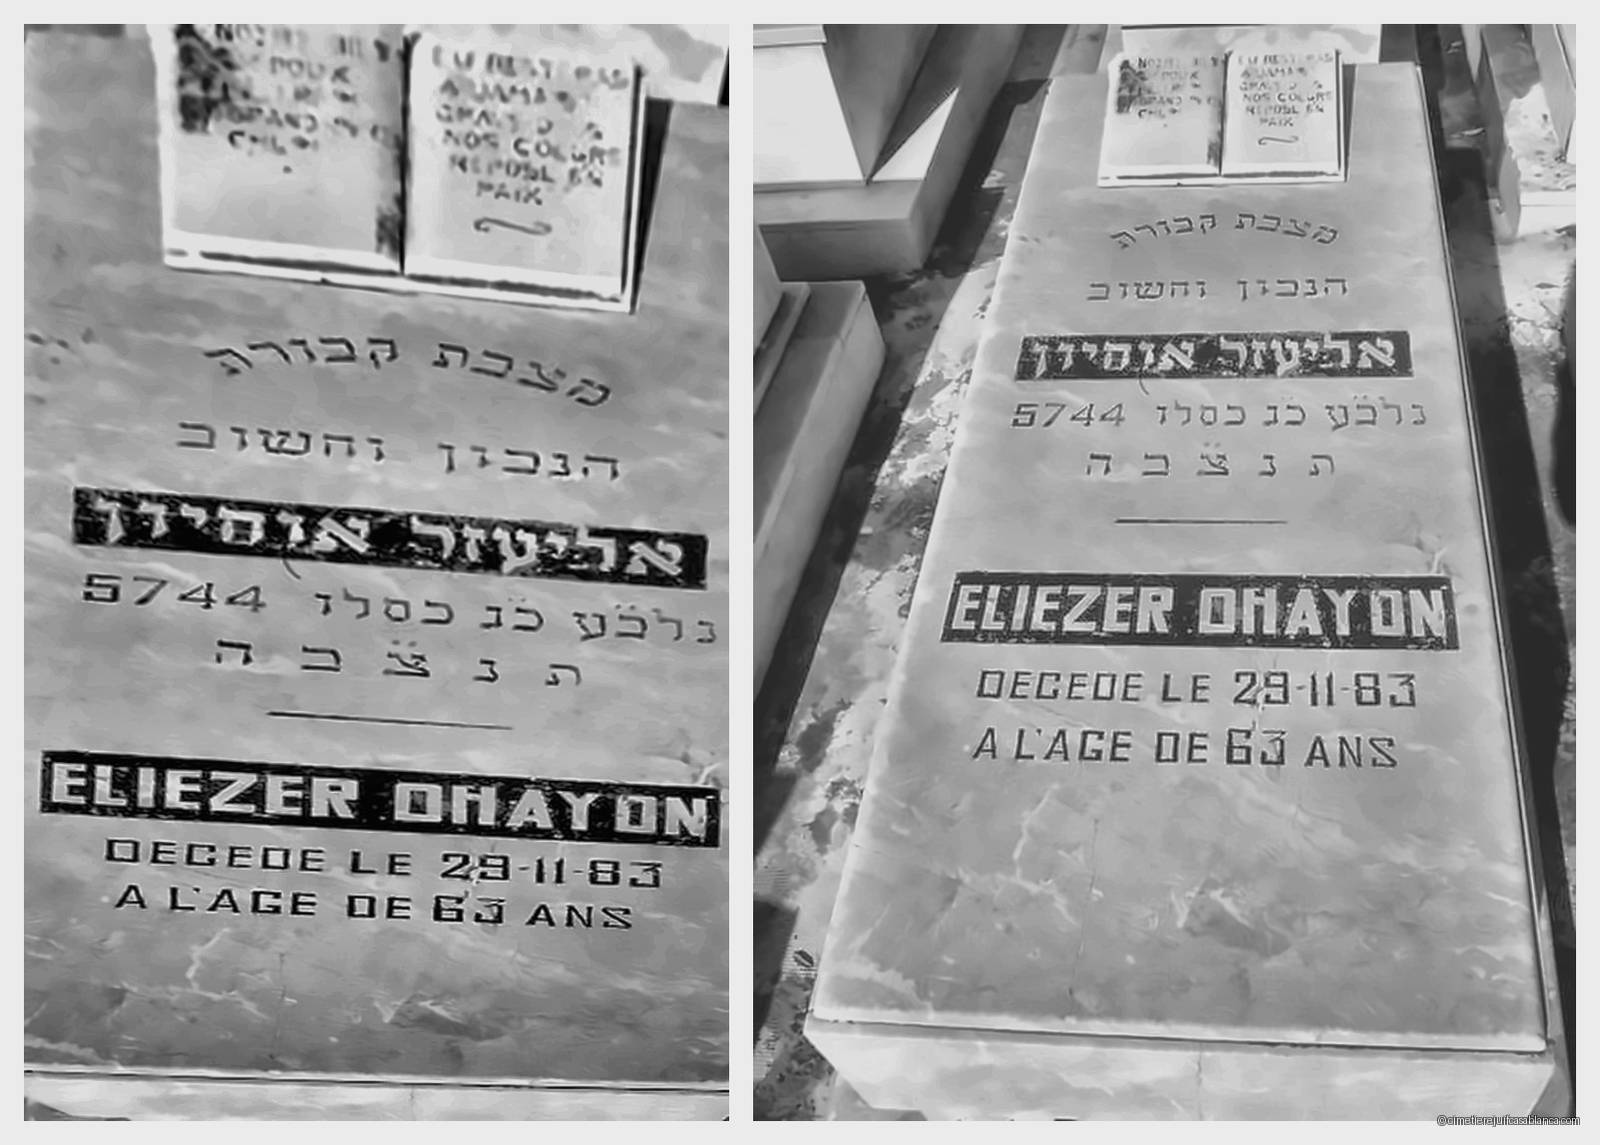 EPOUX
GRAND
A JAMAIS
NOS COEURS
REPOSE EN
PAIX
מצבת קבורת
הנכון וחשוב
אליעזר אוחיון
נלב״ע כ״ג כסלו 5744
ת נ צ ב ה
ELIEZER OHAYON
DECEDE LE 29-11-83
A L'AGE DE 63 ANS
EPOUX
GRAND
A JAMAIS
NOS COEURS
REPOSE EN
PAIX
מצבת קבורת
הנכון וחשוב
אליעזר אוחיון
נלב״ע כ״ג כסלו 5744
ת נ צ ב ה
ELIEZER OHAYON
DECEDE LE 29-11-83
A L'AGE DE 63 ANS
©cimetierejuifcasablanca.com